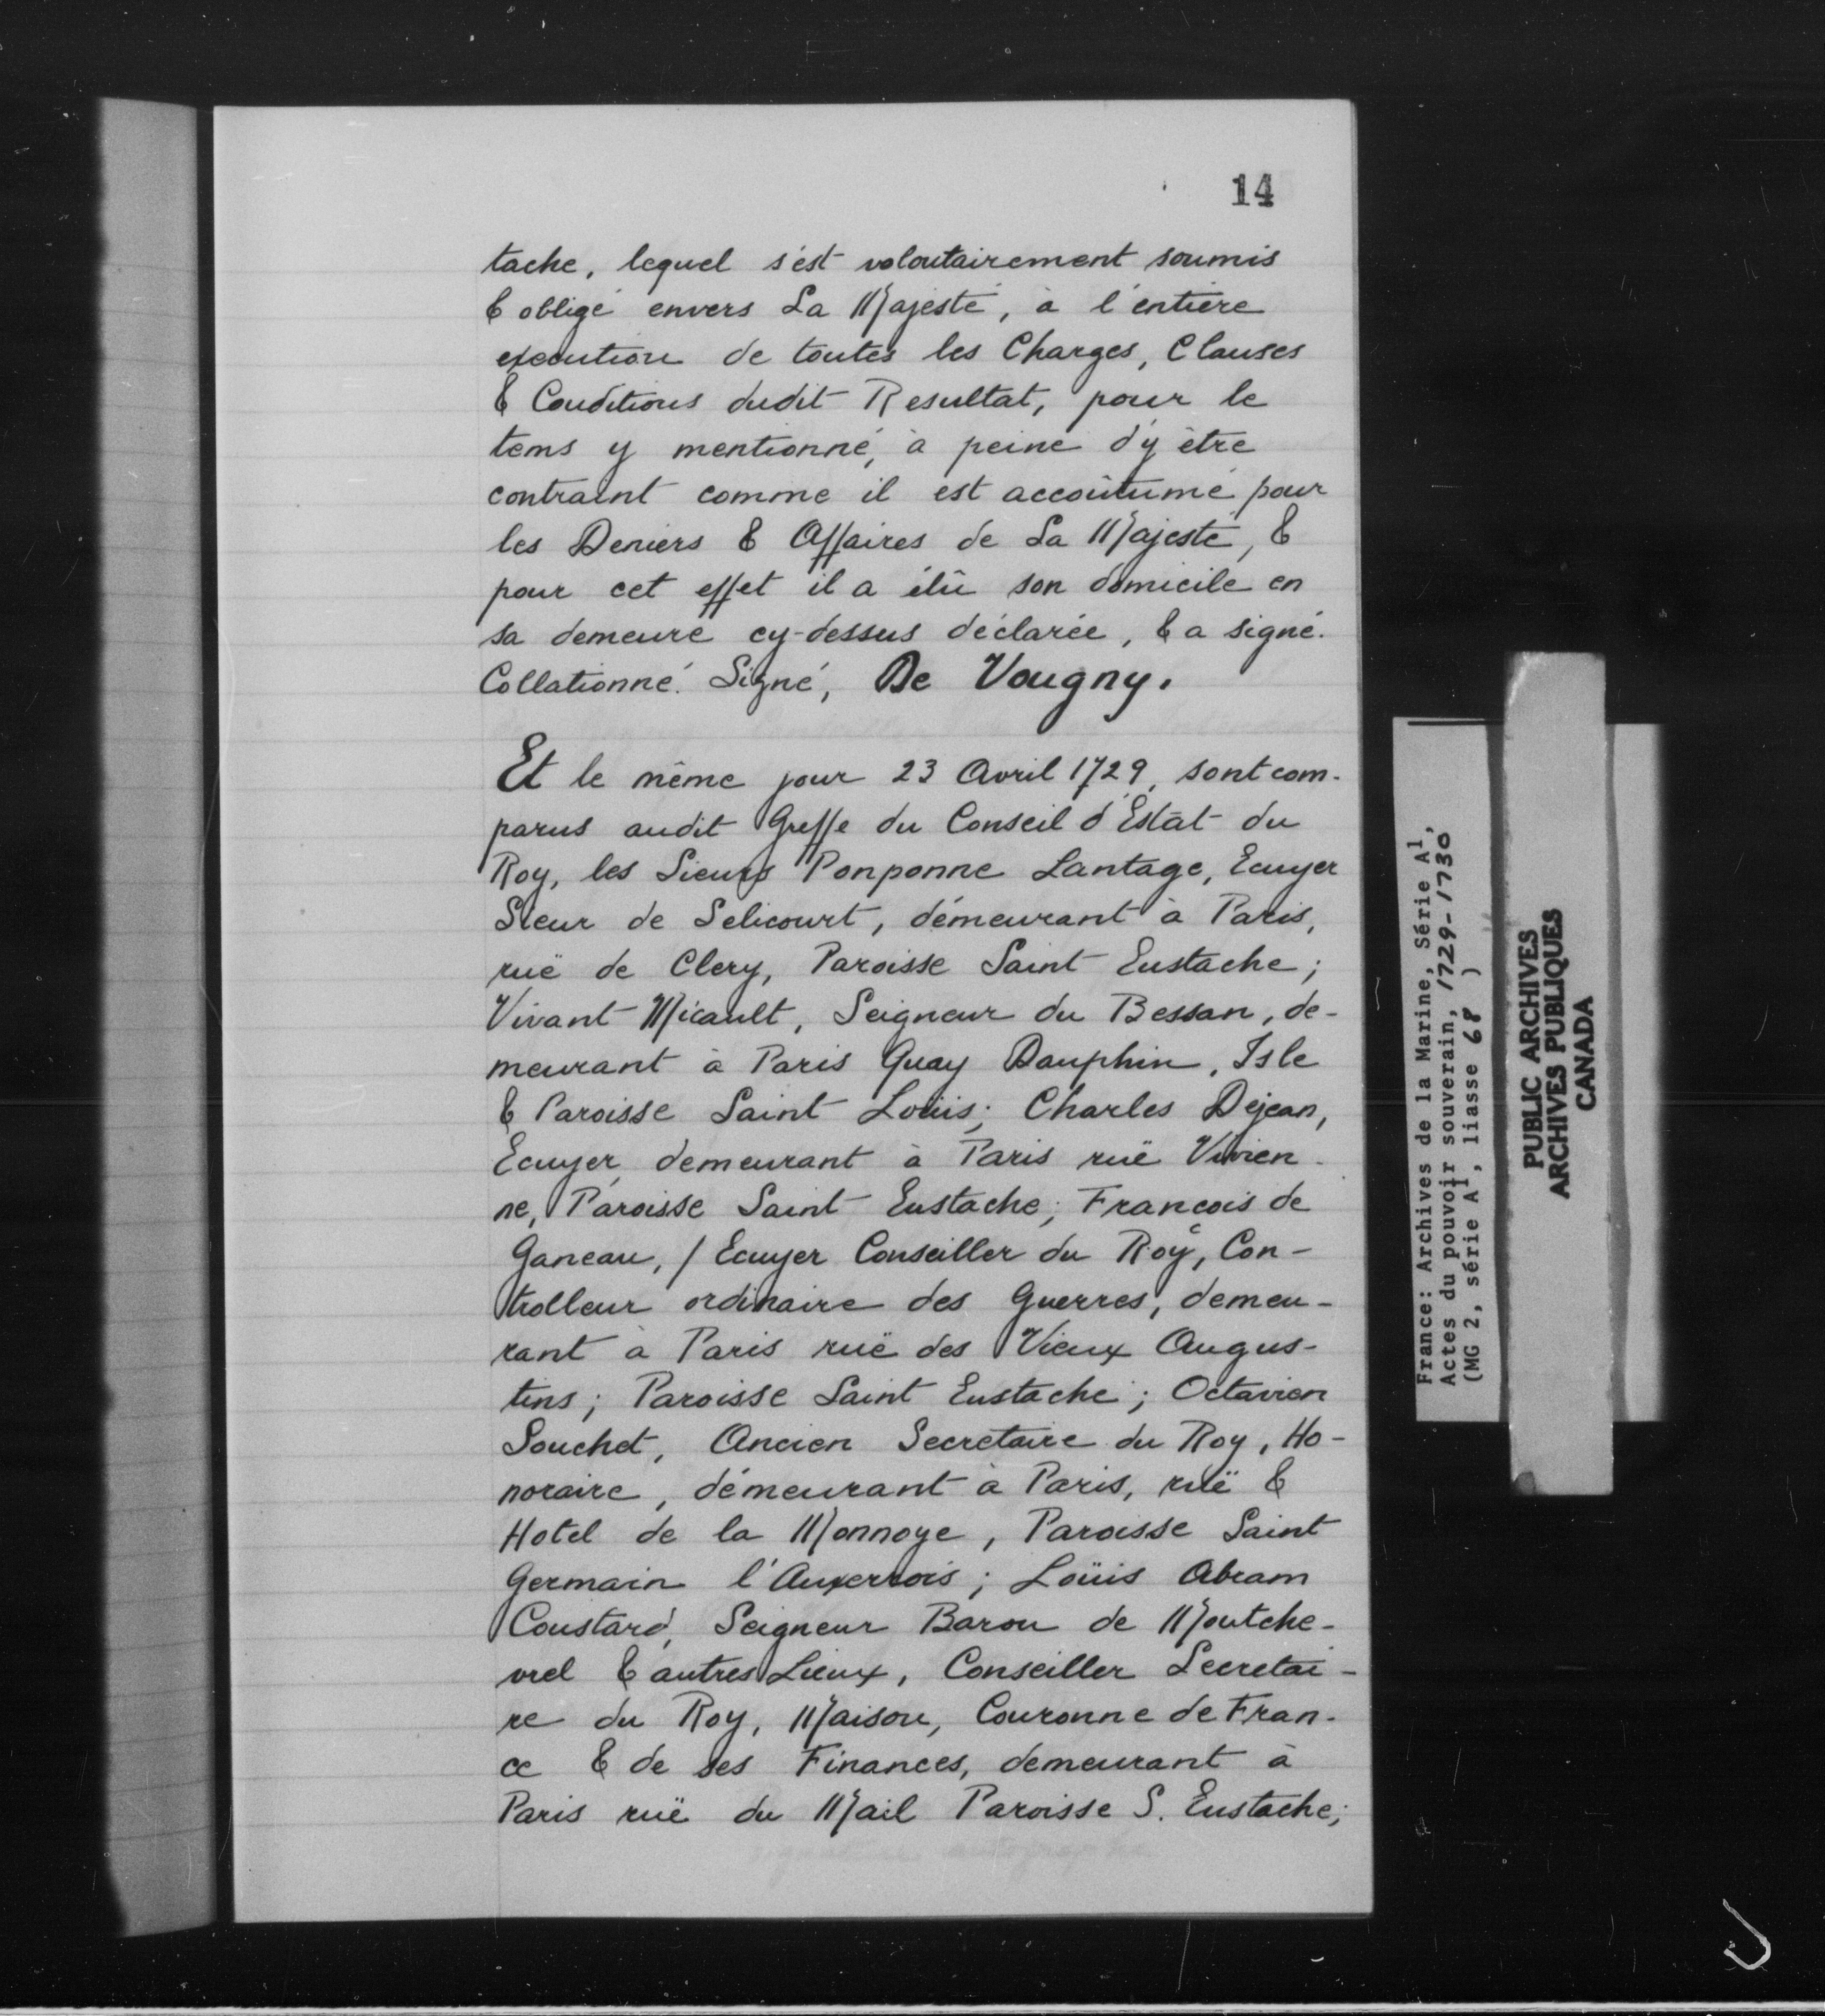 14
tache, lequel s'est volontairement soumis
& obligé envers Sa Majesté, à l'entière
execution de toutes les Charges, Clauses
& Conditions dudit Resultat, pour le
tems y mentionné, à peine d'y être
contraint comme il est accoûtumé pour
les Deniers & Affaires de Sa Majesté, &
pour cet effet il a élû son domicile en
sa demeure cy-dessus déclarée, & a signé.
Collationné. Signé, De Vougny.
Et le même jour 23 Avril 1729, sont com-
parus audit Greffe du Conseil d'Estat du
Roy, les Sieurs Ponponne Lantage, Ecuyer
Sieur de Selicourt, démeurant à Paris,
ruë de Clery, Paroisse Saint Eustache;
Vivant Micault, Seigneur du Bessan, de-
meurant à Paris Quay Dauphin, Isle
& Paroisse Saint Loüis; Charles Dejean,
Ecuyer, demeurant à Paris ruë Vivien-
ne, Paroisse Saint Eustache; François de
Ganeau, / Ecuyer Conseiller du Roy, Con-
trolleur ordinaire des Guerres, demeu-
rant à Paris ruë des Vieux Augus-
tins; Paroisse Saint Eustache; Octavien
Souchet, Ancien Secretaire du Roy, Ho-
noraire, démeurant à Paris, ruë &
Hotel de la Monnoye, Paroisse Saint
Germain l'Auxerrois; Loüis Abram
Coustard, Seigneur Baron de Montche-
vrel & autres Lieux, Conseiller Secretai-
re du Roy, Maison, Couronne de Fran-
ce & de ses Finances, demeurant à
Paris ruë du Mail Paroisse S. Eustache;
France: Archives de la Marine, Série A1,
Actes du pouvoir souverain, 1729-1730
(MG 2, série A1, liasse 68 )
PUBLIC ARCHIVES
ARCHIVES PUBLIQUES
CANADA